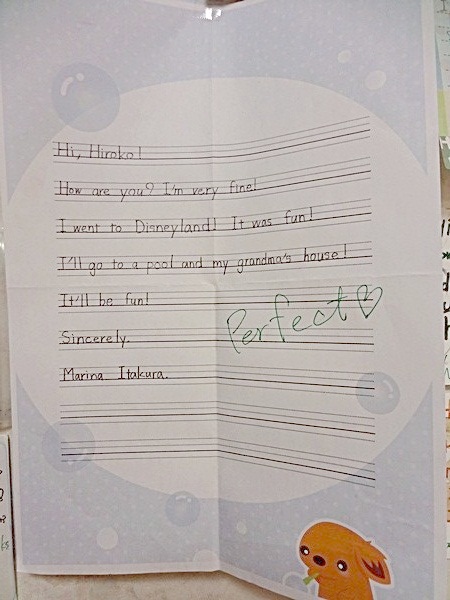 Hi, Hiroko!
How are you? I'm very fine!
I went to Disneyland! It was fun!
I'll go to a pool and my grandma's house!
It'll be fun!
Perfect
Sincerely.
Marina Itakura.
ks